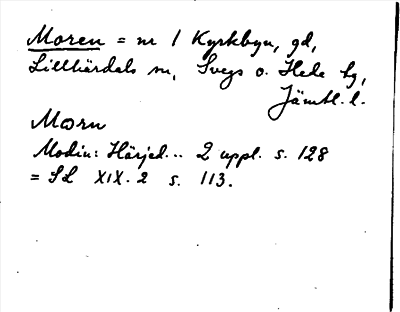 Moren = nr 1 Kyrkbyn, gd,
Lillhärdals sn, Svegs o. Hede hg,
Jämtl. l.
Mωrn
Modin: Härjed... 2 uppl. s. 128
= SL XIX. 2 s. 113.